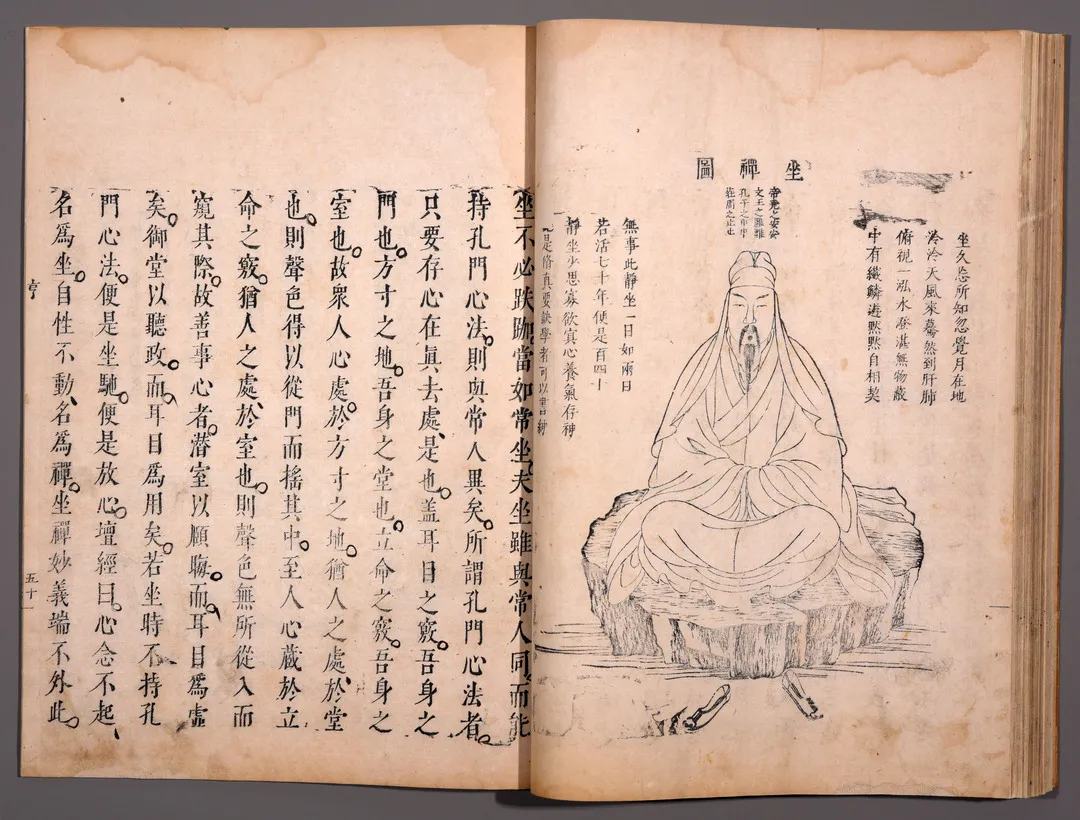 坐禪圖
坐久忘所知忽覺月在地
冷冷天風來驀然到肝肺
俯視一泓水澄湛無物蔽
中有纖鱗遊黙黙自相契
帝堯之安安
文王之雝雝
孔子之申申
莊周之止止
無事此靜坐一日如兩日
若活七十年便是百四十
靜坐少思寡欲冥心養氣存神
此是脩真要訣學者可以書紳
坐不必趺跏當如常坐夫坐雖與常人同而能
持孔門心法。則與常人異矣。所謂孔門心法者。
只要存心在眞去處、是也。盖耳目之竅。吾身之
門也。方寸之地。吾身之堂也。立命之竅。吾身之
室也。故衆人心處於方寸之地。猶人之處、於堂
也。則聲色得以從門而搖其中。至人心藏於立
命之竅。猶人之處、於室也。則聲色無所從入而
窺其際。故善事心者。潜室以頤晦。而耳目爲虛
矣。御堂以聽政。而耳目爲用矣。若坐時不持孔
門心法。便是坐馳。便是放心。壇經曰。心念不起、
名爲坐。自性不動、名爲禪。坐禪妙義端不外此。
亨
五十一